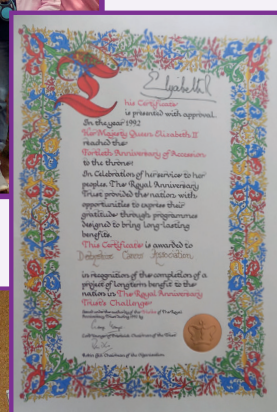 Elizabeth R
This Certificate
is presented with approval.
In the year 1992
Her Majesty Queen Elizabeth II
reached the
Fortieth Anniversary of Accession
to the throne
In Celebration of her service to her
peoples, The Royal Anniversary
Trust provided the nation with
opportunities to express their
gratitude through programmes
designed to bring long-lasting
benefits.
This Certificate is awarded to
Debenham Carers Association
in recognition of the completion of a
project of long term benefit to the
nation in The Royal Anniversary
Trust's Challenge